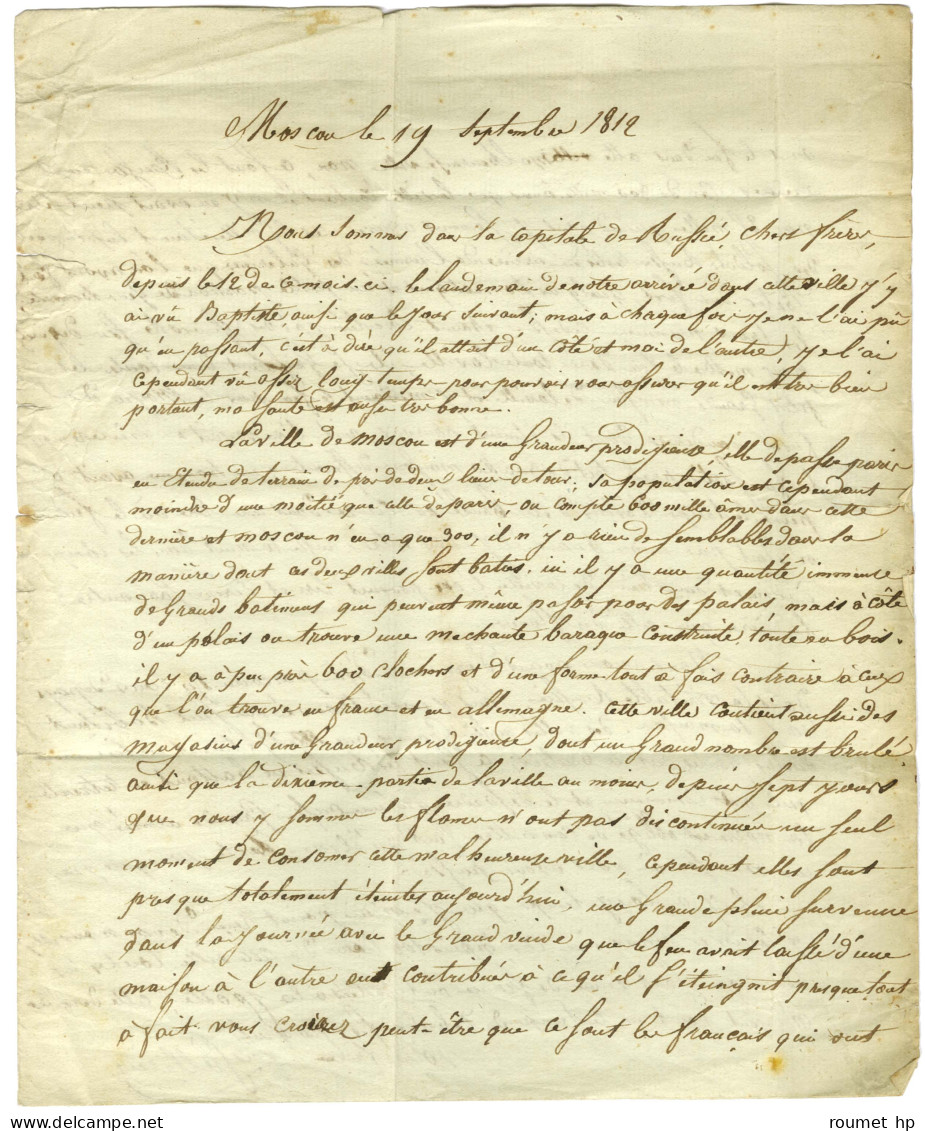 Moscou le 19 Septembre 1812
Nous sommes dans la capitale de Russie, chers frères,
depuis le 12 de ce mois-ci. le landemain de notre arrivée dans cette ville j'y
ai vû Baptiste, ainsi que le jour suivant; mais à chaque fois je ne l'ai pû
qu'en passant, c'est à dire qu'il allait d'un côté et moi de l'autre, je l'ai
cependant vû assez long-temps pour pouvoir vous assurer qu'il est tres bien
portant, ma santé est aussi très bonne.
La ville de Moscou est d'une Grandeur prodigieuse, elle depasse paris
en Etendu de terrain de près de deux lieux de tour; sa population est cependant
moindre d'une moitié que celle de paris, on compte 600 mille âmes dans cette
dernière et moscou n'en a que 300, il n'y a rien de semblables dans la
manière dont ces deux villes sont baties. ici il y a une quantité immense
de Grands batimens qui peuvent même passer pour des palais, mais à côté
d'un palais on trouve une mechante baraque construite toute en bois.
il y a à peu près 600 clochers et d'une forme tout à fais contraire à ceux
que l'on trouve en france et en allemagne. cette ville contient aussi des
magasins d'une Grandeur prodigieuse, dont un Grand nombre est brulé
ainsi que la dixieme partie de la ville au moins, depuis sept jours
que nous y sommes les flames n'ont pas discontinuée un seul
moment de consomer cette malheureuse ville, cependant elles sont
presque totalement éteintes aujourd'hui, une Grande pluie survenue
dans la journée avec le Grand vuide que le feu avait laissé d'une
maison à l'autre ont contribués à ce qu'il s'éteingnit presque tout
à fait vous croirez peut-être que ce sont les français qui ont
roumet hp